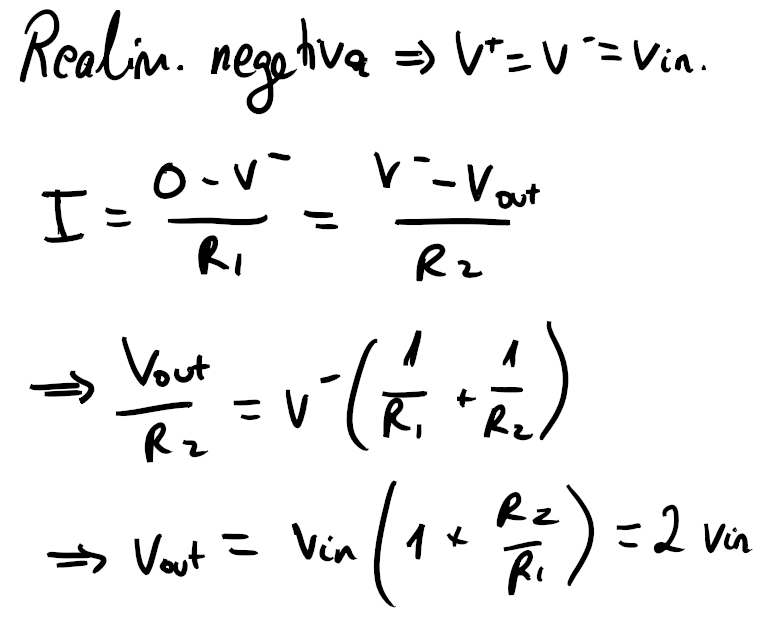 Realim. negativa ⇒ V⁺ = V⁻ = Vin.
I = (0 - V⁻)/R₁ = (V⁻ - Vout)/R₂
⇒ Vout/R₂ = V⁻(1/R₁ + 1/R₂)
⇒ Vout = Vin(1 + R₂/R₁) = 2 Vin